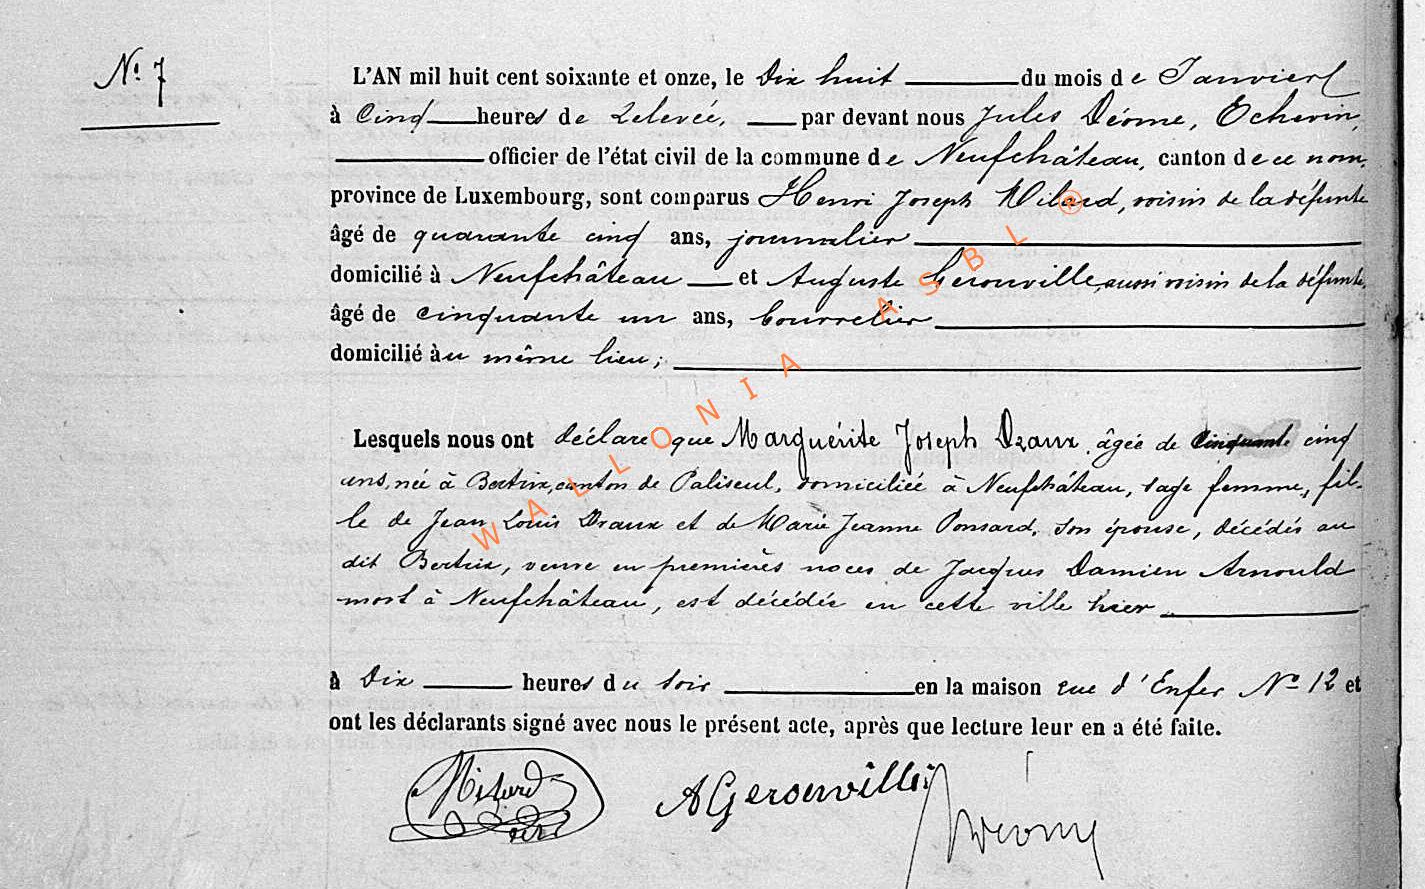 N° 7
L'AN mil huit cent soixante et onze, le Dix huit du mois de Janvier
à Cinq heures de Relevée, par devant nous Jules Déome, Echevin,
officier de l'état civil de la commune de Neufchâteau, canton de ce nom,
province de Luxembourg, sont comparus Henri Joseph Milard, voisin de la défunte
âgé de quarante cinq ans, journalier
domicilié à Neufchâteau et Auguste Gerouville, aussi voisin de la défunte,
âgé de cinquante un ans, bourrelier
domicilié au même lieu;
Lesquels nous ont déclaré que Marguérite Joseph Draux, âgée de cinquante cinq
ans, née à Bertrix, canton de Paliseul, domiciliée à Neufchâteau, sage femme, fil-
le de Jean Louis Draux et de Marie Jeanne Ponsard, son épouse, décédés au
dit Bertrix, veuve en premières noces de Jacques Damien Arnould
mort à Neufchâteau, est décédée en cette ville hier
à Dix heures du soir en la maison rue d'Enfer N° 12 et
ont les déclarants signé avec nous le présent acte, après que lecture leur en a été faite.
Milard
AGerouville
JDéome
WALLONIA ASBL ®